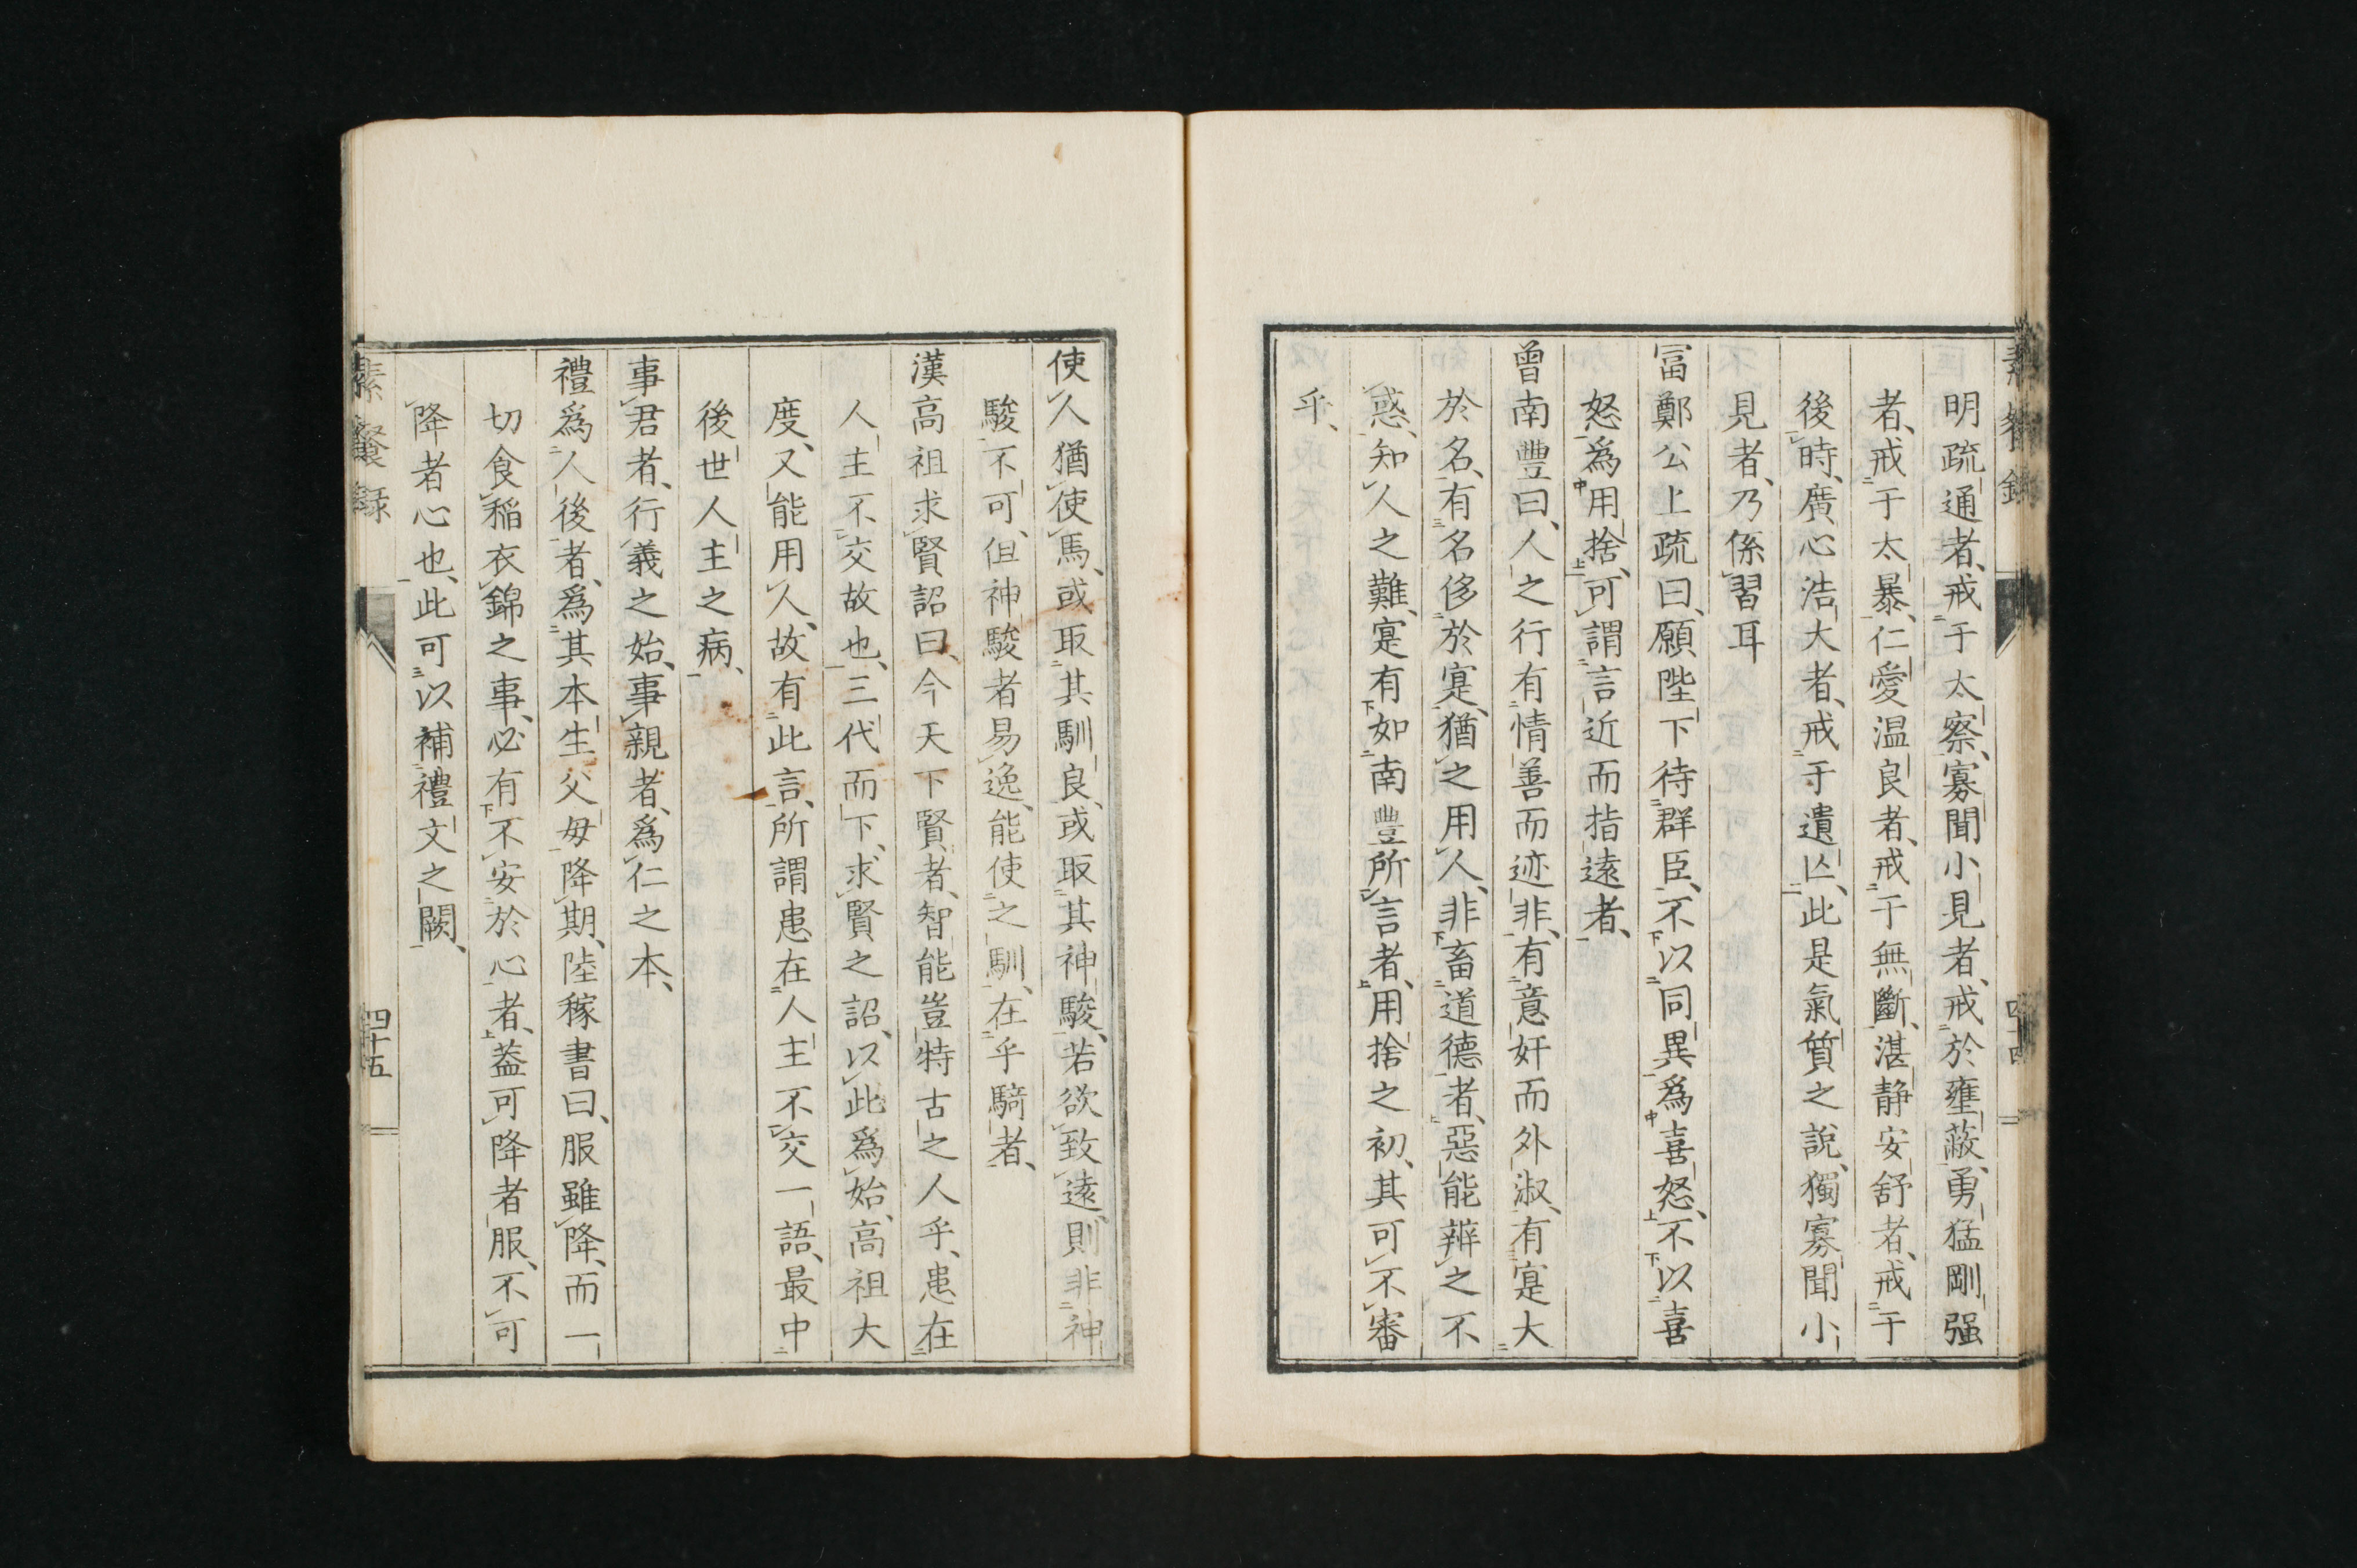 明疏通者、戒于太察、寡聞小見者、戒於壅蔽、勇猛剛强
者、戒于太暴、仁愛温良者、戒于無斷、湛静安舒者、戒于
後時、廣心浩大者、戒于遺亾、此是氣質之説、獨寡聞小
見者、乃係習耳
冨鄭公上疏曰、願陛下待群臣、不以同異爲喜怒、不以喜
怒爲用捨、可謂言近而指遠者、
曾南豐曰、人之行有情善而迹非、有意奸而外淑、有寔大
於名、有名侈於寔、猶之用人、非畜道德者、惡能辨之不
惑、知人之難、寔有如南豐所言者、用捨之初、其可不審
乎、
使人猶使馬、或取其馴良、或取其神駿、若欲致遠、則非神
駿不可、但神駿者易逸、能使之馴、在乎騎者、
漢高祖求賢詔曰、今天下賢者、智能豈特古之人乎、患在
人主不交故也、三代而下、求賢之詔、以此爲始、高祖大
度、又能用人、故有此言、所謂患在人主不交一語、最中
後世人主之病、
事君者、行義之始、事親者、爲仁之本、
禮爲人後者、爲其本生父母降期、陸稼書曰、服雖降、而一
切食稲衣錦之事、必有不安於心者、葢可降者服、不可
降者心也、此可以補禮文之闕、
素餐録
四十五